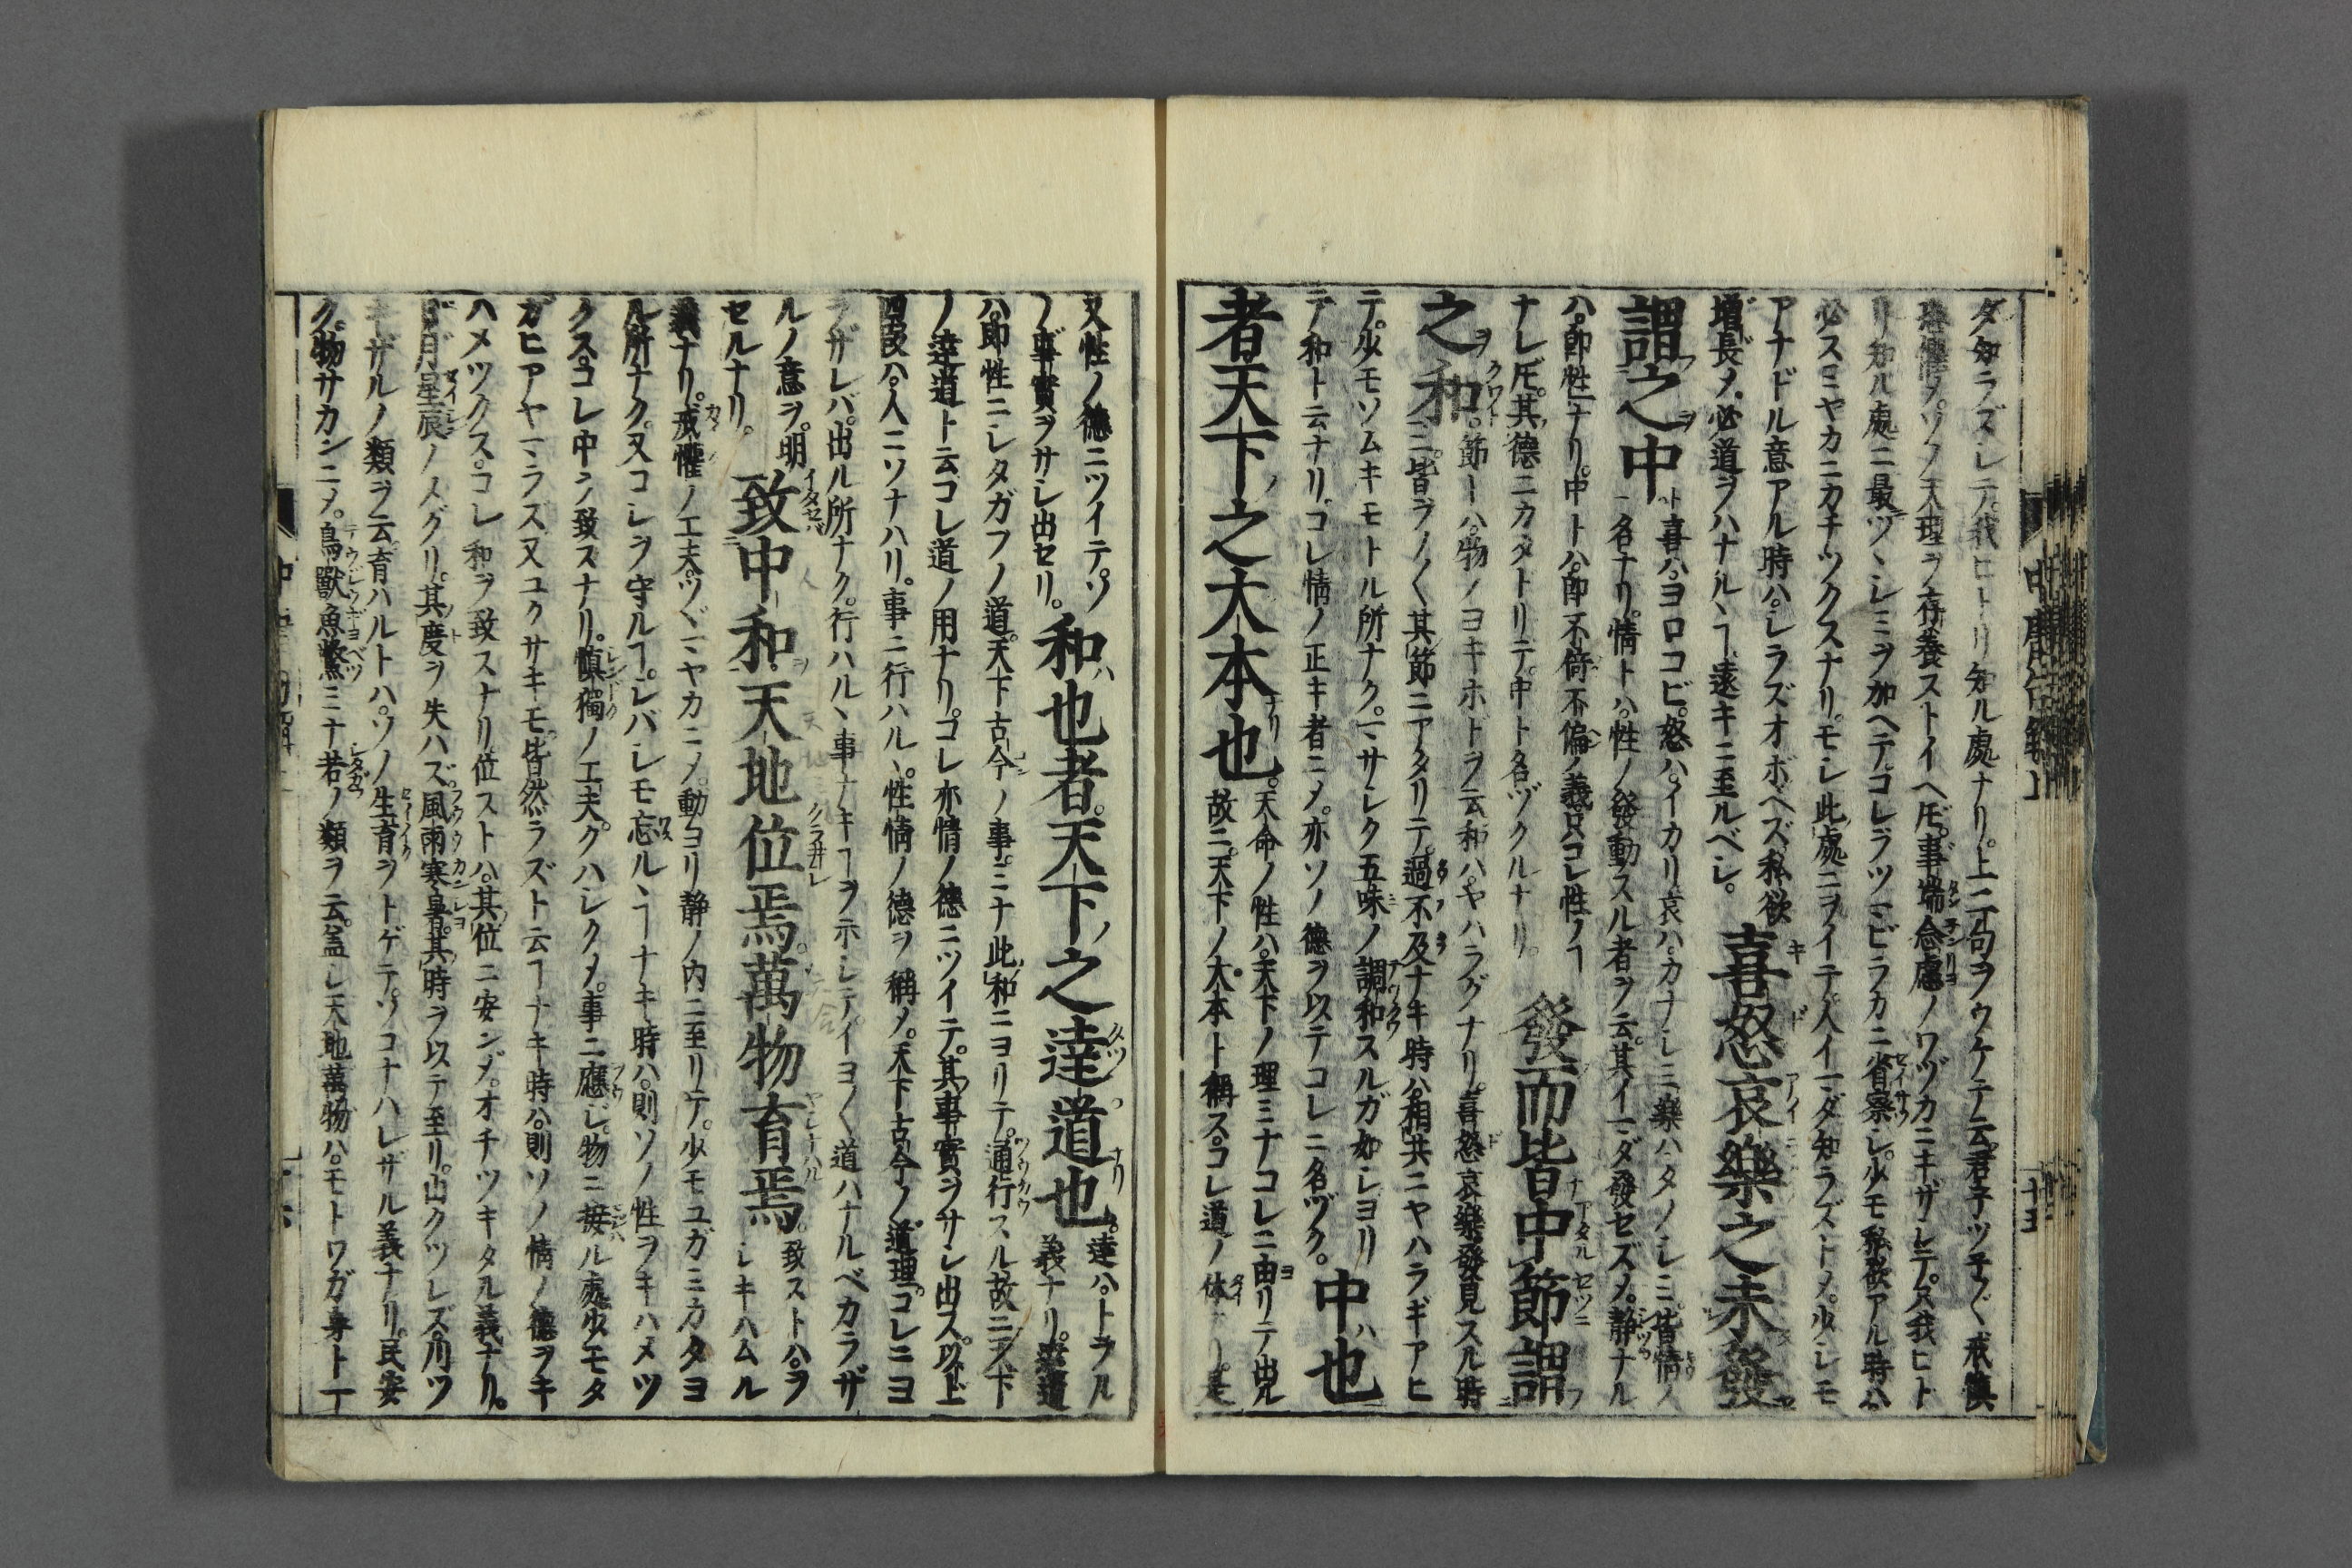 タ知ラズシテ。我ヒトリ知ル處ナリ。上二句ヲウケテ云。君子ツ子ニ戒愼
恐懼〆。ソノ天理ヲ存養ストイヘ𪜈。事端念慮ノワヅカニキザシテ。只我ヒト
リ知ル處ニ最ツヽシミヲ加ヘテ。コレヲツマビラカニ省察シ。少モ私欲アル時ハ
必スミヤカニカチツクスナリ。モシ此處ニヲイテ人イマダ知ラズト〆。少シモ
アナドル意アル時ハ。シラズオボヘズ私欲
增長〆。必道ヲハナルヽヿ遠キニ至ルベシ。喜怒哀樂之未發
謂之中ト喜ハヨロコビ。怒ハイカリ哀ハ。カナシミ樂ハタノシミ。皆情ノ
一名ナリ。情トハ。性ノ發動スル者ヲ云。其イマダ發セズ〆。靜ナル
ハ。即性ナリ。中トハ。即不倚不偏ノ義只コレ性ノヿ
ナレ𪜈。其德ニカタトリテ。中ト名ヅクルナリ。發而皆中節謂
之和。節ーハ。物ノヨキホドヲ云和ハ。ヤハラグナリ。喜怒哀樂發見スル時
ニ。皆ヲノ〱其節ニアタリテ。過不及ナキ時ハ。相共ニヤハラギアヒ
テ。少モソムキモトル所ナク。マサシク五味ノ調和スルガ如シヨリ
テ和ト云ナリ。コレ情ノ正キ者ニ〆。亦ソノ德ヲ以テコレニ名ヅク。中ハ也
者天下之大本也。天命ノ性ハ。天下ノ理ミナコレニ由リテ出ル
故ニ。天下ノ大本ト稱ス。コレ道ノ体ナリ。是
又性ノ德ニツイテ。ソ
ノ事實ヲサシ出セリ。和ハ也者。天下之達道也。達ハ。トヲル
義ナリ。達道
ハ。即性ニシタガフノ道。天下古今ノ事。ミナ此和ニヨリテ。通行スル故ニ。天下
ノ達道ト云コレ道ノ用ナリ。コレ亦情ノ德ニツイテ。其事實ヲサシ出ス。以上
四段ハ。人ニソナハリ。事ニ行ハルヽ。性情ノ德ヲ稱〆。天下古今ノ道理。コレニヨ
ラザレバ。出ル所ナク。行ハルヽ事ナキヿヲ示シテ。イヨ〱道ハナルベカラザ
ルノ意ヲ。明
セルナリ。致中和。天地位焉。萬物育焉。致ストハ。ヲ
シキハムル
義ナリ。戒懼ノ工夫。ツヾマヤカニ〆。動ヨリ靜ノ内ニ至リテ。少モユガミカタヨ
ル所ナク。又コレヲ守ルヿ。シバシモ忘ルヽヿナキ時ハ。則ソノ性ヲキハメツ
クス。コレ中ヲ致スナリ。愼獨ノ工夫。クハシク〆。事ニ應ジ。物ニ接ル處。少モタ
ガヒアヤマラズ。又ユクサキモ。皆然ラズト云ヿナキ時ハ。則ソノ情ノ德ヲキ
ハメツクス。コレ和ヲ致スナリ位ストハ。其位ニ安ンジ。オチツキタル義ナリ。
日月星辰ノメグリ。其度ヲ失ハズ。風雨寒暑。其時ヲ以テ至リ。山クヅレズ。川ツ
キザルノ類ヲ云。育ハルトハ。ソノ生育ヲトゲテ。ソコナハレザル義ナリ。民安
ク。物サカンニ〆。鳥獸魚鱉ミナ若ノ類ヲ云。盖シ天地萬物ハ。モトワガ身ト一
中庸
十五